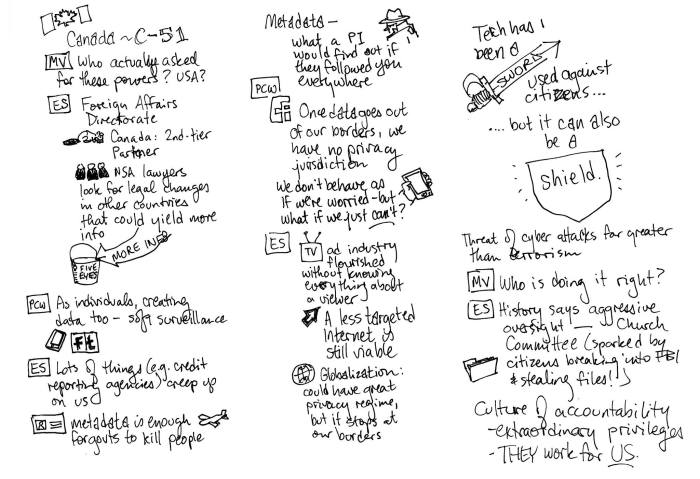 Canada ~ C-51
MV Who actually asked
for these powers? USA?
ES Foreign Affairs
Directorate
Canada: 2nd-tier
Partner
NSA lawyers
look for legal changes
in other countries
that could yield more
info
MORE INFO
FIVE
EYES
PCW As individuals, creating
data too - soft surveillance
f t
ES Lots of things (e.g. credit
reporting agencies) creep up
on us
metadata is enough
for gouts to kill people
Metadata -
what a PI
would find out if
they followed you
everywhere
PCW
Once data goes out
of our borders, we
have no privacy
jurisdiction
We don't behave as
if we're worried - but
what if we just can't?
ES TV ad industry
flourished
without knowing
everything about
a viewer
A less targeted
Internet is
still viable
Globalization:
could have great
privacy regime,
but it stops at
our borders
Tech has
been a
SWORD
used against
citizens...
.... but it can also
be a
Shield.
Threat of cyber attacks far greater
than terrorism
MV Who is doing it right?
ES History says aggressive
oversight - Church
Committee (sparked by
citizens breaking into FBI
& stealing files!)
Culture of accountability
- extraordinary privileges
- THEY work for US.